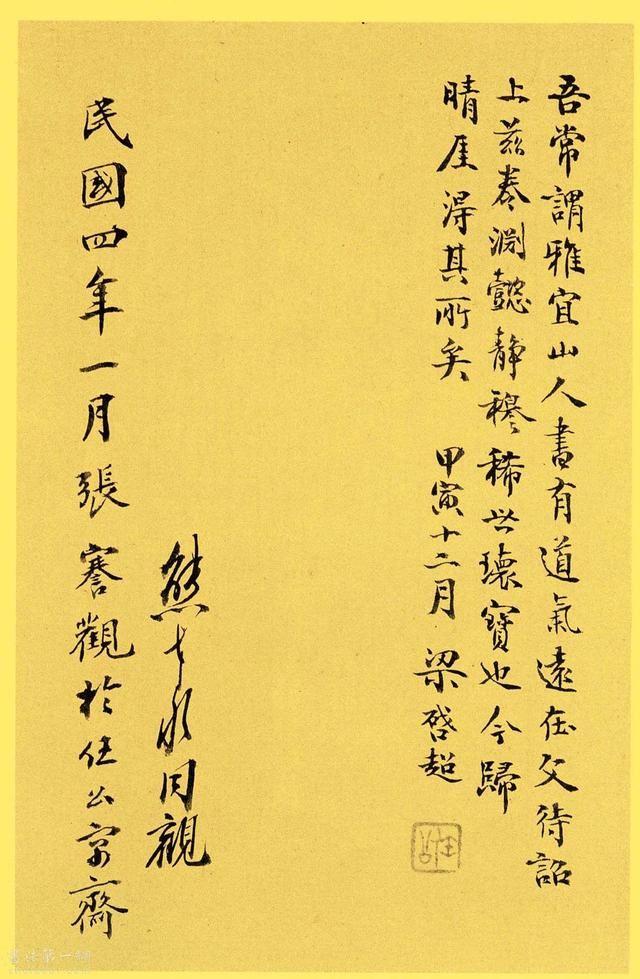 吾常謂雅宜山人書有道氣遠在父待詔
上茲卷淵懿靜穆稀世瓌寶也今歸
晴厓得其所矣
甲寅十二月梁啓超
任公
熊希齡同觀
民國四年一月張謇觀於任公寓齋
書法第一網